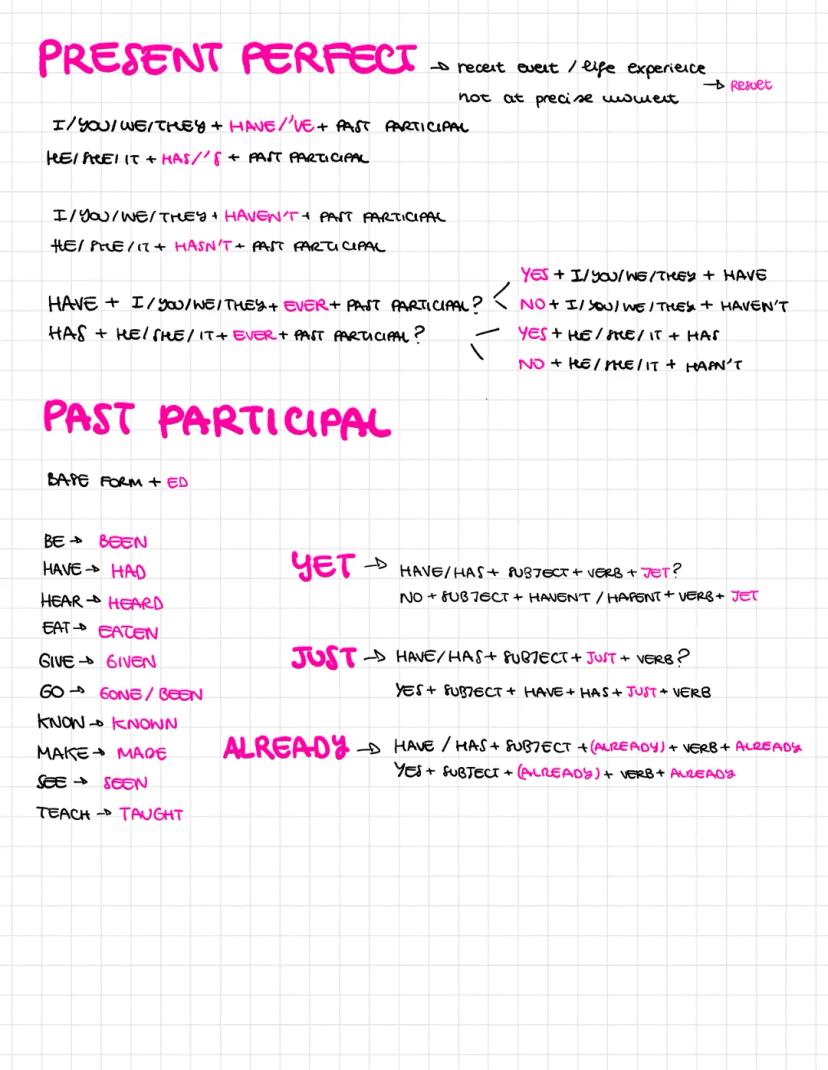 PRESENT PERFECT → recent event / life experience
not at precise moment → Result
I/YOU/WE/THEY + HAVE/'VE + PAST PARTICIPAL
HE/SHE/IT + HAS/'S + PAST PARTICIPAL
I/YOU/WE/THEY + HAVEN'T + PAST PARTICIPAL
HE/SHE/IT + HASN'T + PAST PARTICIPAL
HAVE + I/YOU/WE/THEY + EVER + PAST PARTICIPAL?
HAS + HE/SHE/IT + EVER + PAST PARTICIPAL?
YES + I/YOU/WE/THEY + HAVE
NO + I/YOU/WE/THEY + HAVEN'T
YES + HE/SHE/IT + HAS
NO + HE/SHE/IT + HASN'T
PAST PARTICIPAL
BASE FORM + ED
BE → BEEN
HAVE → HAD
HEAR → HEARD
EAT → EATEN
GIVE → GIVEN
GO → GONE / BEEN
KNOW → KNOWN
MAKE → MADE
SEE → SEEN
TEACH → TAUGHT
YET → HAVE/HAS + SUBJECT + VERB + JET?
NO + SUBJECT + HAVEN'T / HASENT + VERB + JET
JUST → HAVE/HAS + SUBJECT + JUST + VERB?
YES + SUBJECT + HAVE + HAS + JUST + VERB
ALREADY → HAVE / HAS + SUBJECT + (ALREADY) + VERB + ALREADY
YES + SUBJECT + (ALREADY) + VERB + ALREADY